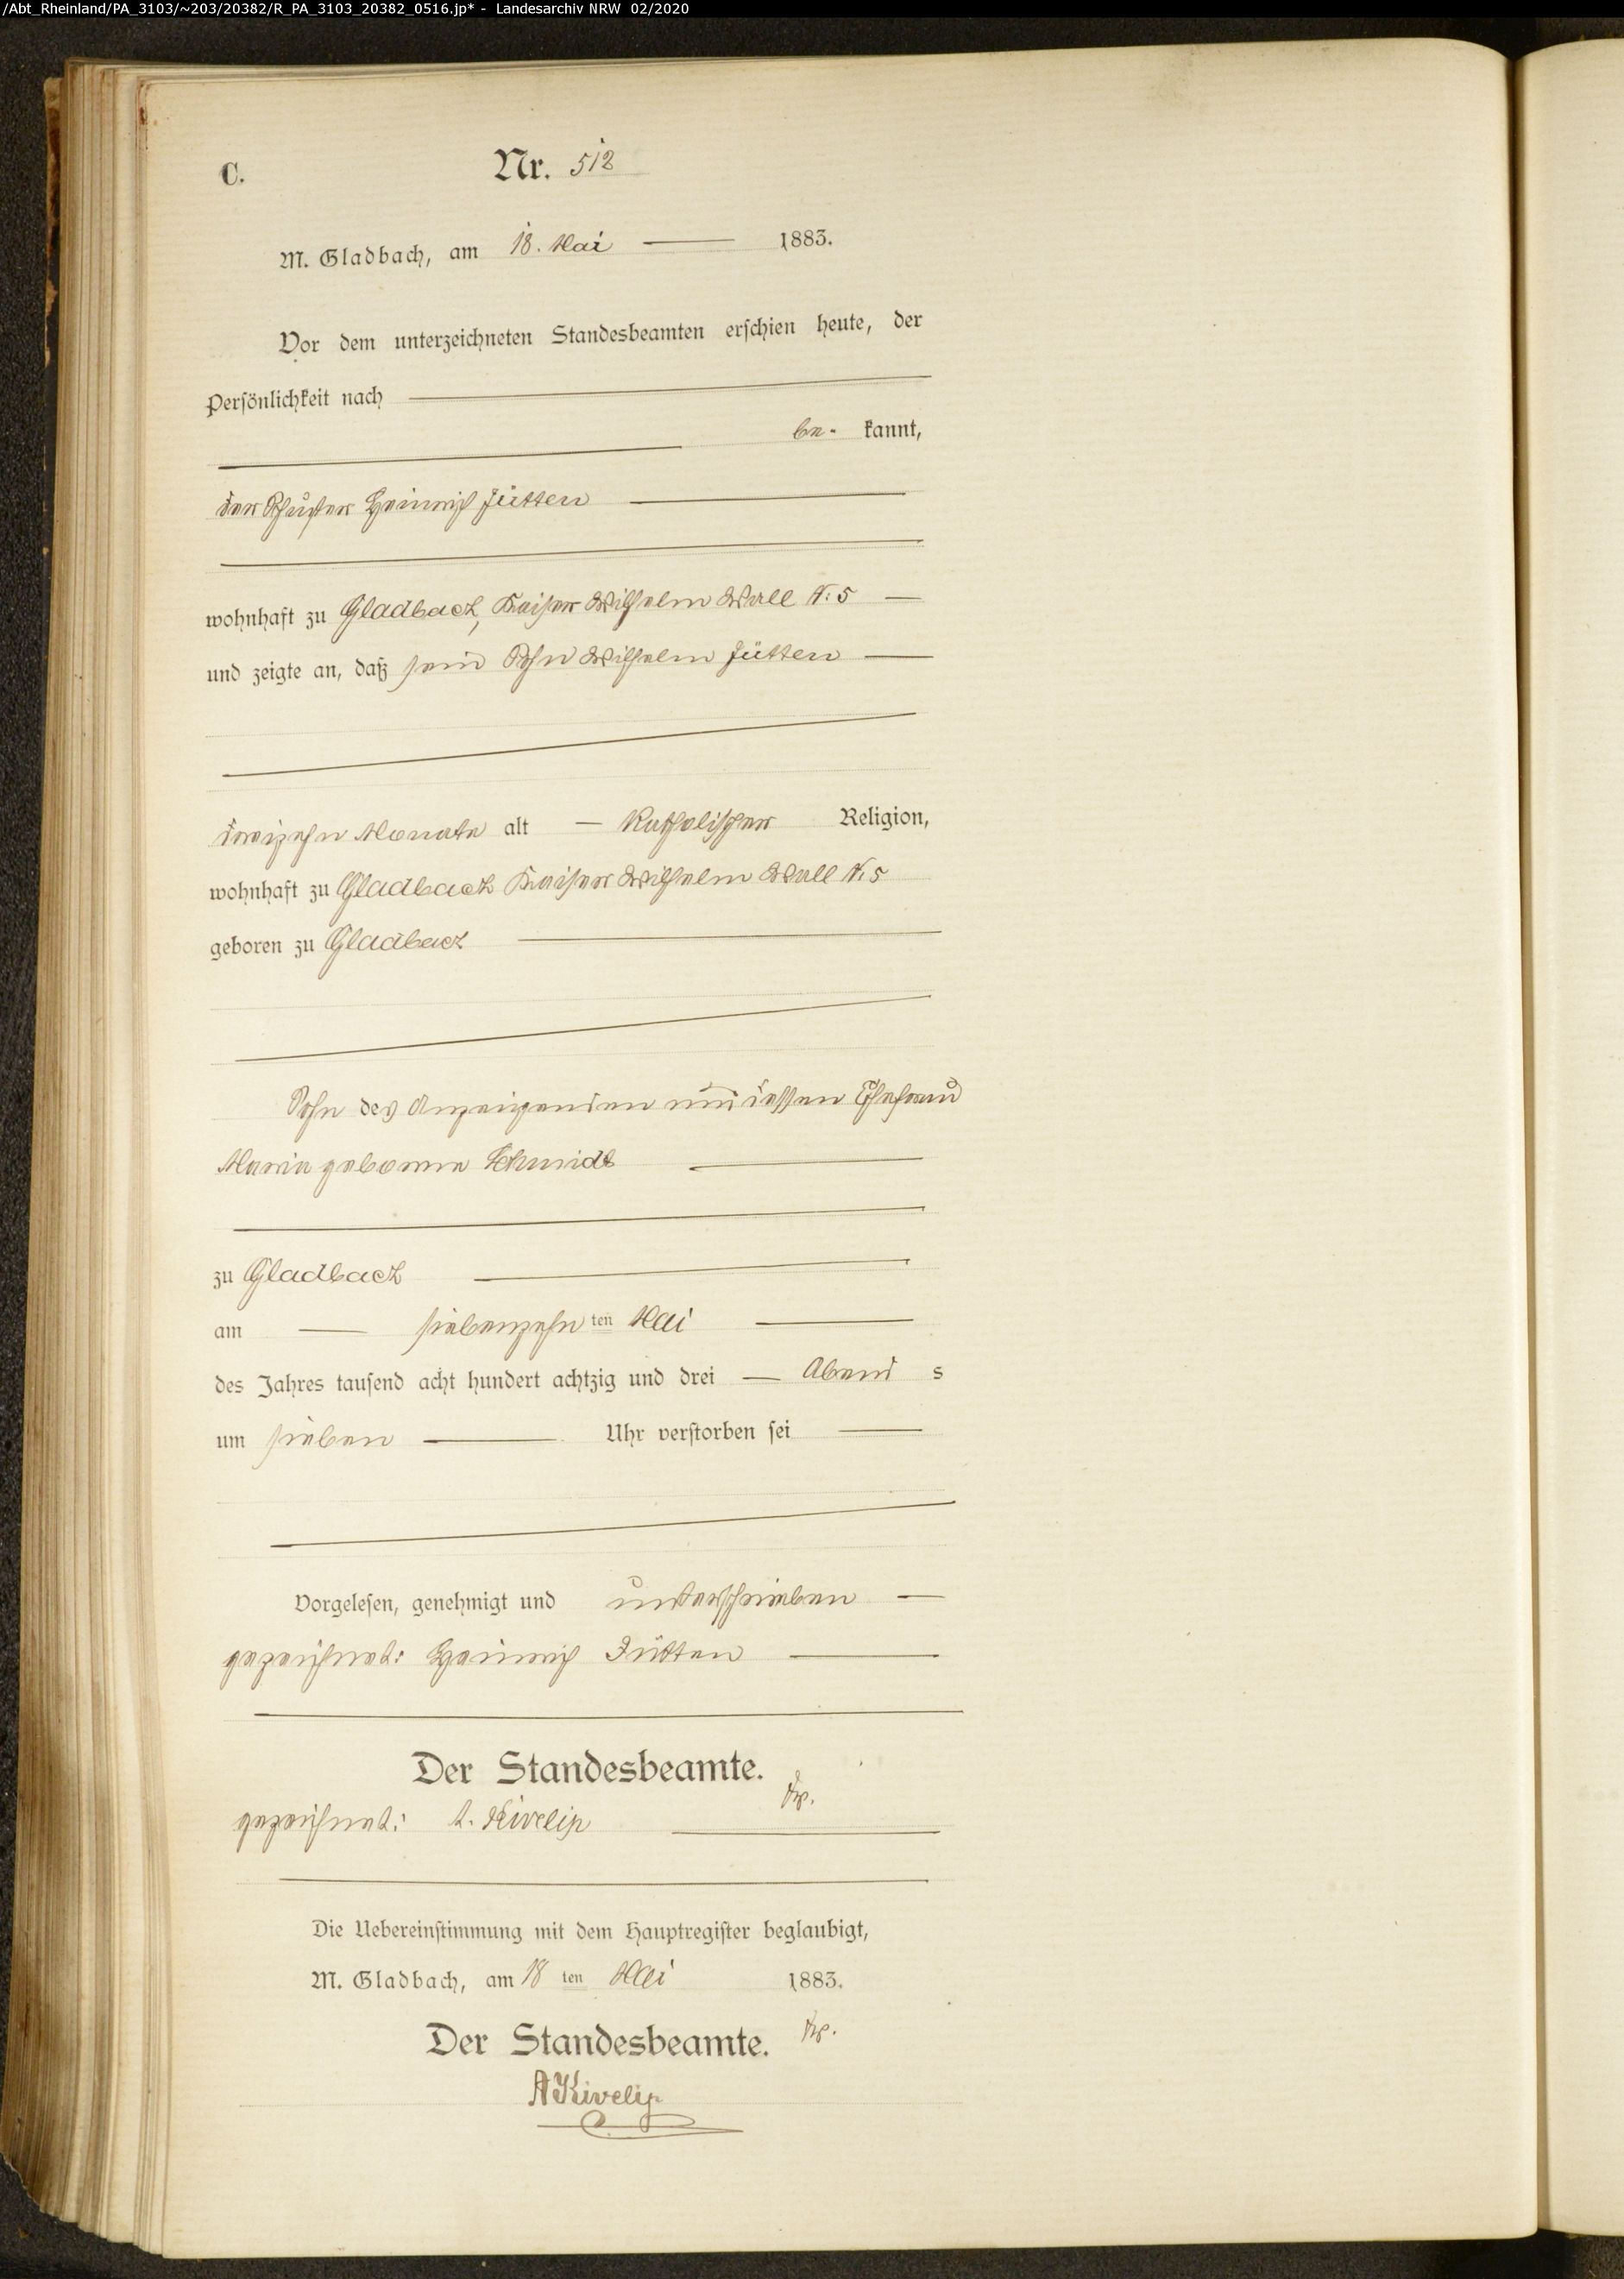 /Abt_Rheinland/PA_3103/~203/20382/R_PA_3103_20382_0516.jp* - Landesarchiv NRW 02/2020
C.
Nr. 512
M. Gladbach, am 18. Mai 1883.
Vor dem unterzeichneten Standesbeamten erschien heute, der
Persönlichkeit nach
be- kannt,
der Schuster Heinrich Jütten
wohnhaft zu Gladbach, Kaiser Wilhelm Wall N. 5
und zeigte an, daß sein Sohn Wilhelm Jütten
dreizehn Monate alt katholischer Religion,
wohnhaft zu Gladbach Kaiser Wilhelm Wall N. 5
geboren zu Gladbach
Sohn des Anzeigenden und dessen Ehefrau
Maria geborene Schmidt
zu Gladbach
am siebenzehn ten Mai
des Jahres tausend acht hundert achtzig und drei Abend s
um sieben Uhr verstorben sei
Vorgelesen, genehmigt und unterschrieben
gezeichnet: Heinrich Jütten
Der Standesbeamte.
gezeichnet: A. Kivelip
Die Uebereinstimmung mit dem Hauptregister beglaubigt,
M. Gladbach, am 18 ten Mai 1883.
Der Standesbeamte.
A Kivelip